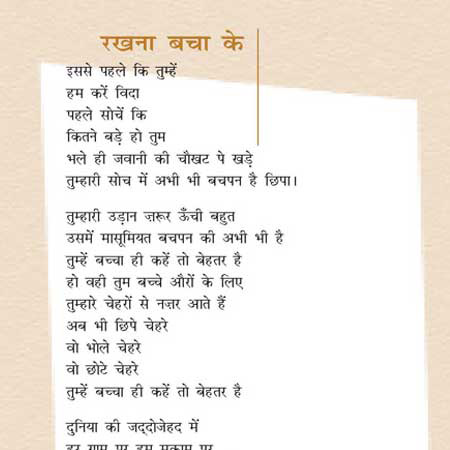 रखना बचा के
इससे पहले कि तुम्हें
हम करें विदा
पहले सोचें कि
कितने बड़े हो तुम
भले ही जवानी की चौखट पे खड़े
तुम्हारी सोच में अभी भी बचपन है छिपा।
तुम्हारी उड़ान ज़रूर ऊँची बहुत
उसमें मासूमियत बचपन की अभी भी है
तुम्हें बच्चा ही कहें तो बेहतर है
हो वही तुम बच्चे औरों के लिए
तुम्हारे चेहरों से नज़र आते हैं
अब भी छिपे चेहरे
वो भोले चेहरे
वो छोटे चेहरे
तुम्हें बच्चा ही कहें तो बेहतर है
दुनिया की जद्दोजेहद में
हर गाम पर हम मुकाम पर